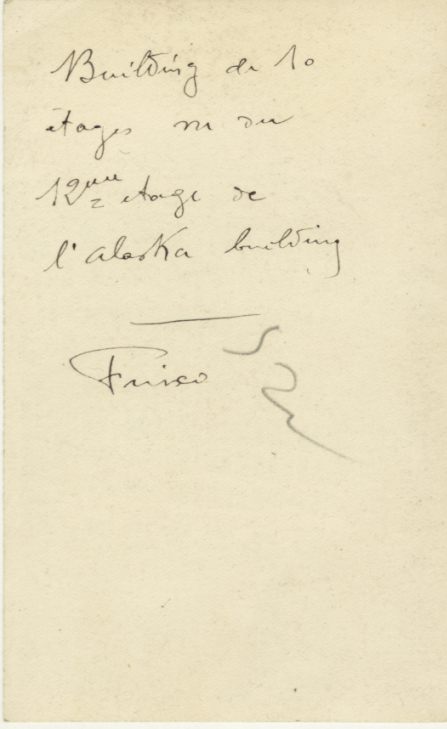 Building de 10
étages vu du
12ème étage de
l'Alaska building
Frisco